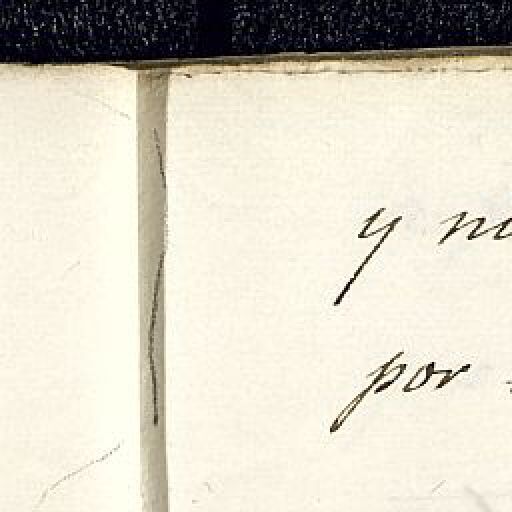 y
por